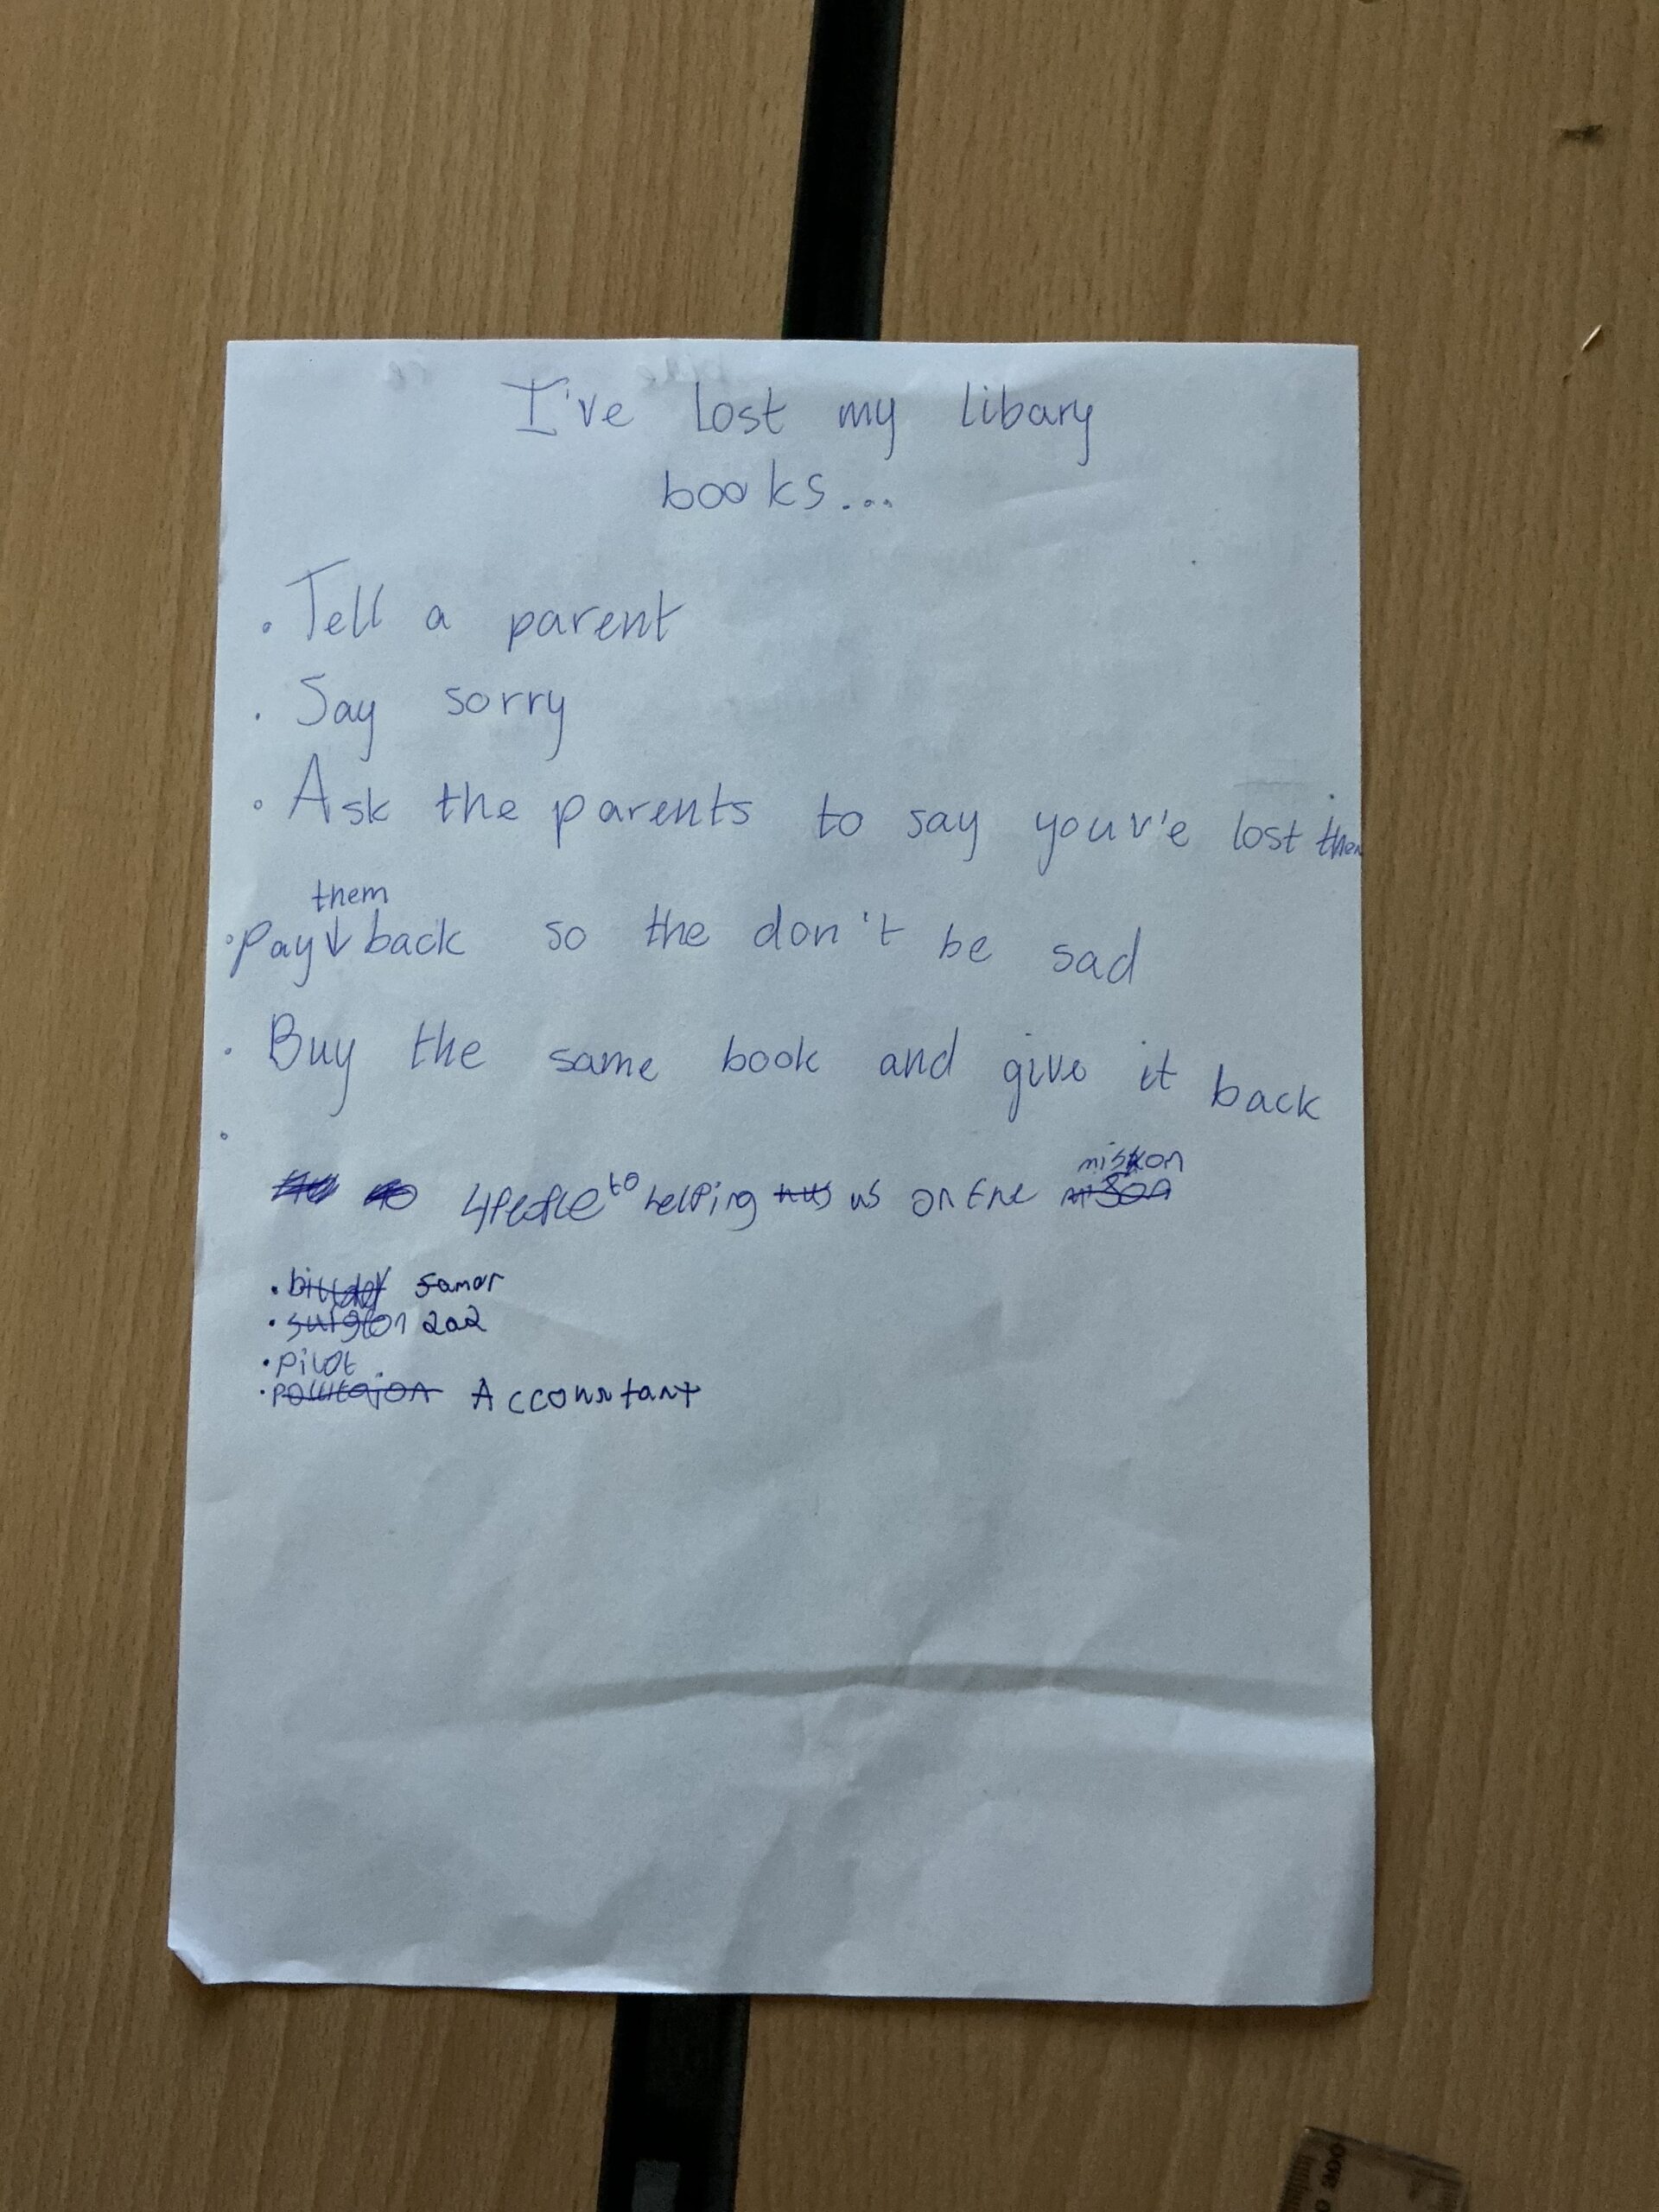 I've lost my libary
books...
• Tell a parent
• Say sorry
• Ask the parents to say youv'e lost them
them
• Pay ↓ back so the don't be sad
• Buy the same book and give it back
•
mission
4 People to helping us on the
• samar
• 202
• Pilot
• Accountant